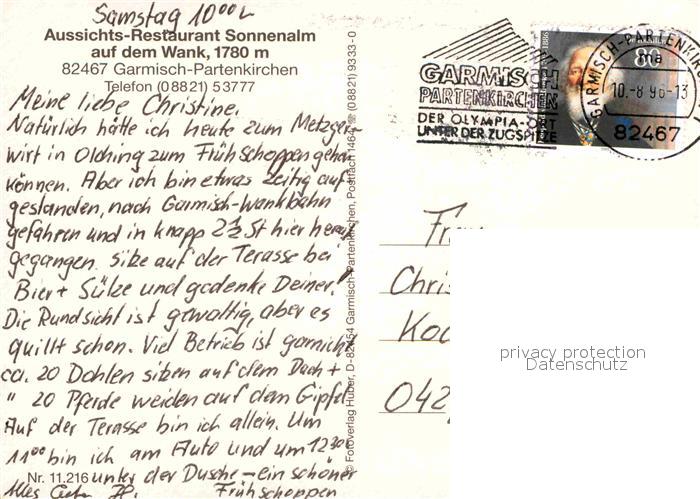 Samstag 10⁰⁰ h
Aussichts-Restaurant Sonnenalm
auf dem Wank, 1780 m
82467 Garmisch-Partenkirchen
Telefon (08821) 53777
Meine liebe Christine.
Natürlich hätte ich heute zum Metzger
wirt in Olching zum Frühschoppen gehen
können. Aber ich bin etwas zeitig auf
gestanden, nach Garmisch-Wankbahn
gefahren und in knapp 2½ St hier herauf
gegangen. sitze auf der Terasse bei
Bier + Sülze und gedenke Deiner!
Die Rundsicht ist gewaltig, aber es
quillt schon. Viel Betrieb ist garnicht
ca. 20 Dohlen sitzen auf dem Dach +
" 20 Pferde weiden auf dem Gipfel
Auf der Terasse bin ich allein. Um
11⁰⁰ bin ich am Auto und um 12³⁰
Nr. 11.216 unter der Dusche – ein schöner
Alles Gute
Frühschoppen
© Fotoverlag Huber, D-82454 Garmisch-Partenkirchen, Postfach 1464, ☎ (08821) 9333-0
GARMISCH
PARTENKIRCHEN
DER OLYMPIA-ORT
UNTER DER ZUGSPITZE
80
GARMISCH-PARTENKI
10.-8.96-13
82467
Chris
Koc
042
privacy protection
Datenschutz